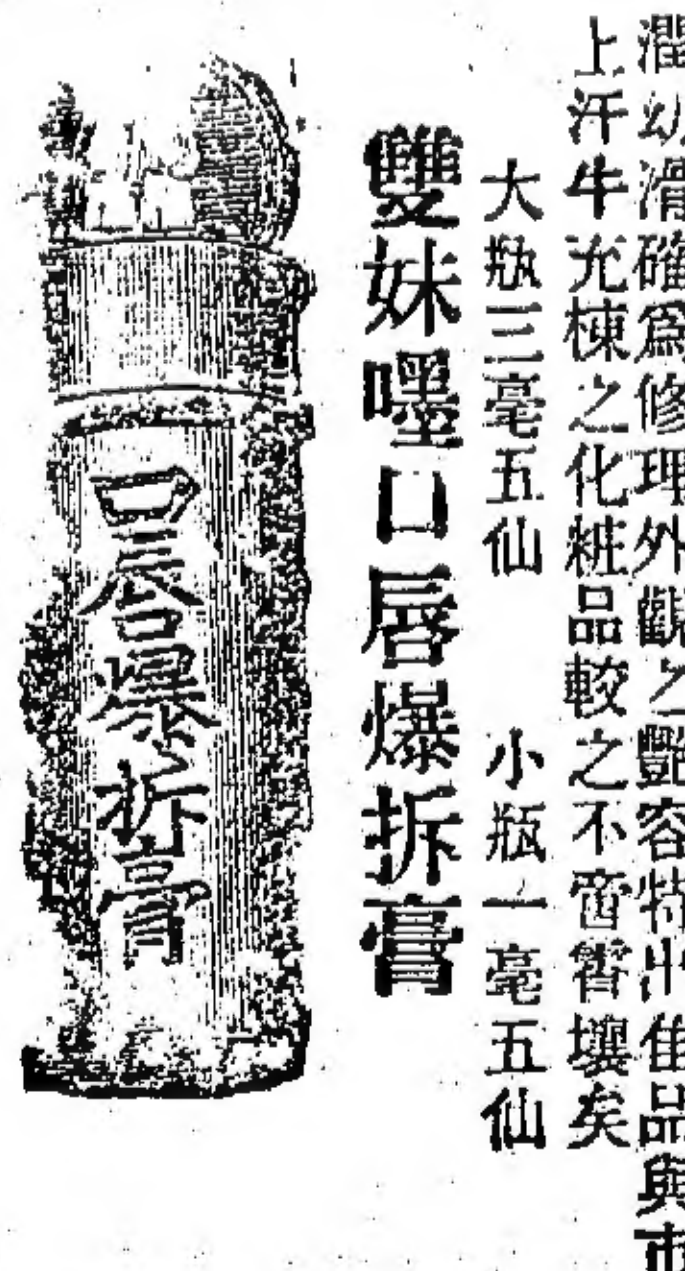 潤幼滑確爲修理外觀之艷容特出佳品與市
上汗牛充棟之化粧品較之不啻霄壤矣
大瓶三毫五仙 小瓶一毫五仙
雙妹嚜口唇爆拆膏
口唇爆拆膏